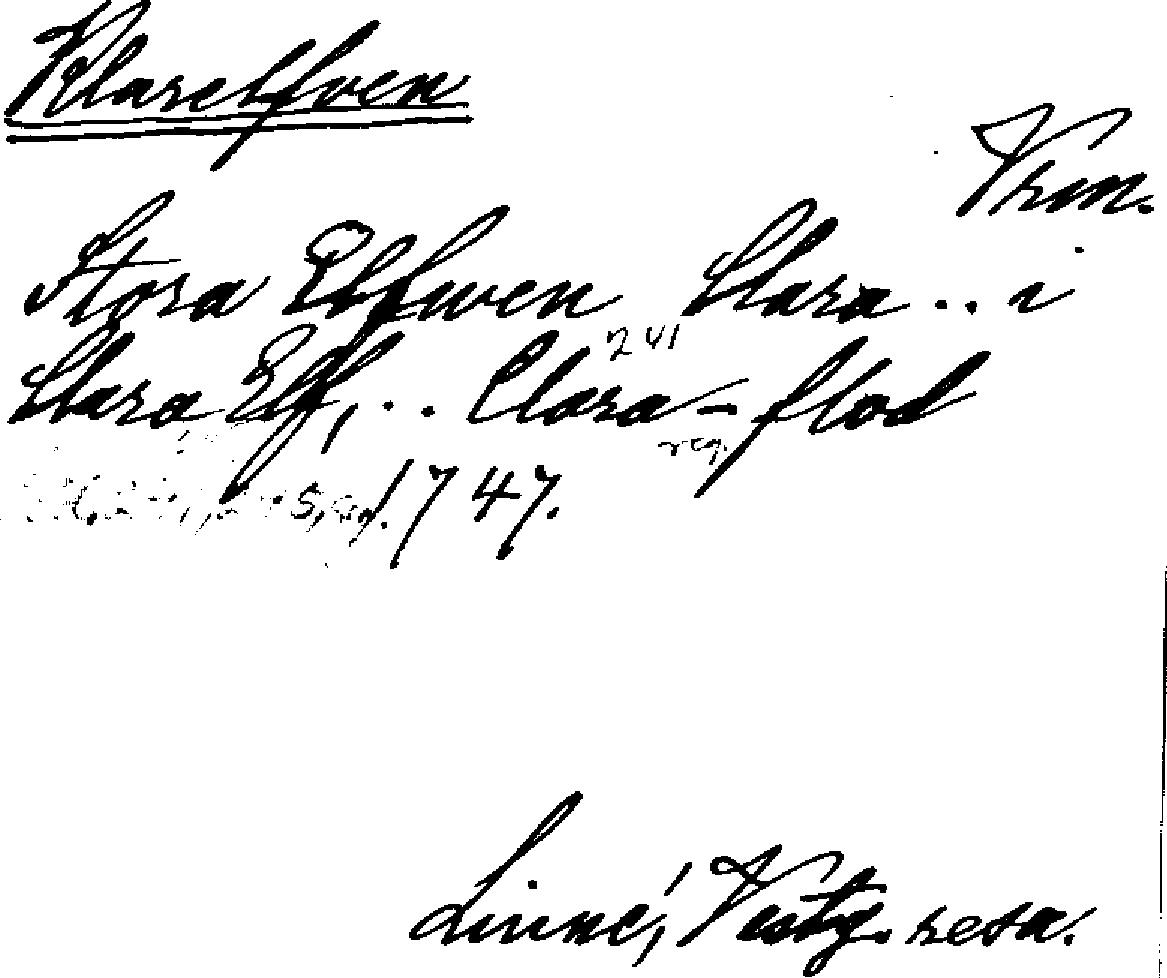 Klarelfven
Vrm.
Stora Elfwen Clara .. i
241
Clara Elf, .. Clara-flod
reg.
1747.
Linné, Vestg. resa.